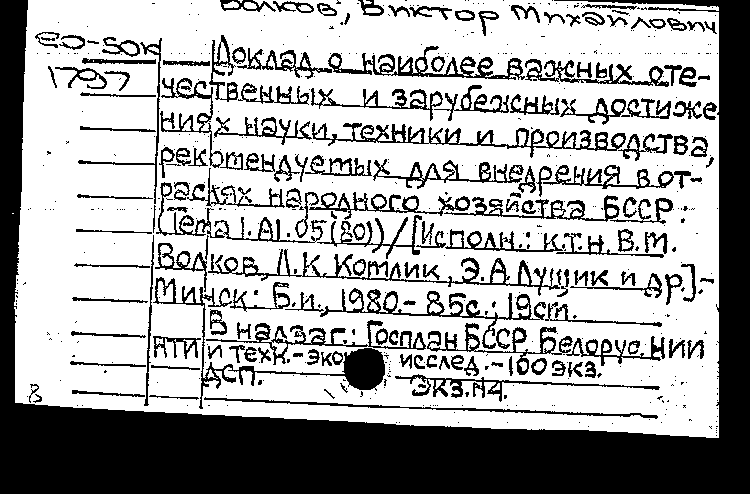 Волков, Виктор Михайлович
ЕО-50К
1797
Доклад о наиболее важных оте-
чественных и зарубежных достиже
ниях науки, техники и производства,
рекомендуемых для внедрения в от-
раслях народного хозяйства БССР:
(Тема 1.А1.05(80))/[Исполн.: к.т.н. В.М.
Волков, Л.К. Котлик, Э.А. Лущик и др.].-
Минск: Б.и., 1980.- 85с.; 19см.
В надзаг.: Госплан БССР. Белорус. НИИ
НТИ и техн.-экон исслед.-100экз.
ДСП. Экз.N4.
8